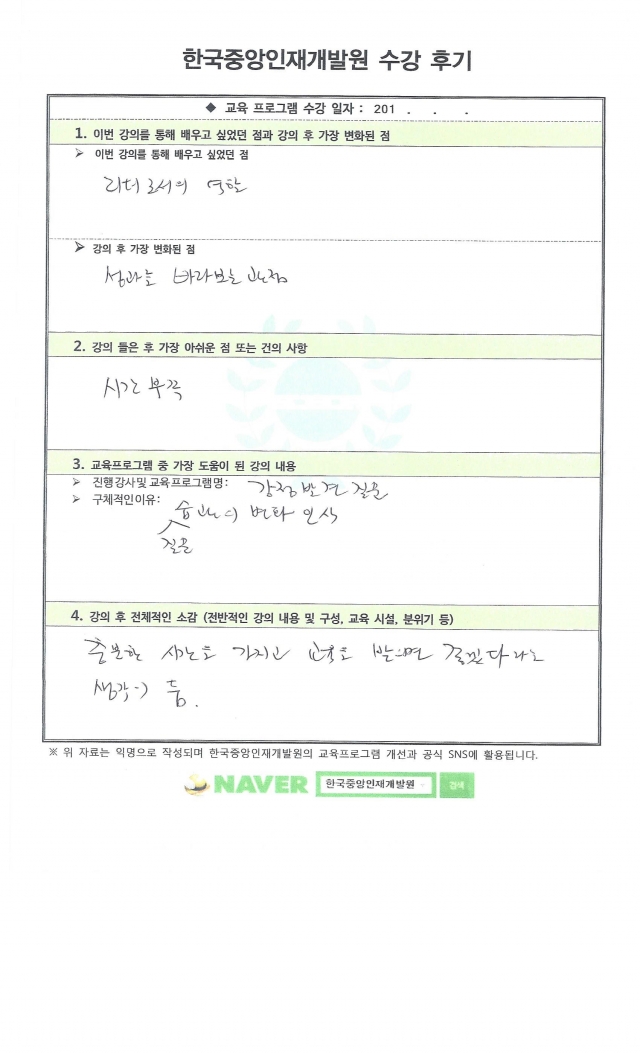 한국중앙인재개발원 수강 후기
◆ 교육 프로그램 수강 일자 : 201 . . .
1. 이번 강의를 통해 배우고 싶었던 점과 강의 후 가장 변화된 점
➢ 이번 강의를 통해 배우고 싶었던 점
리더로서의 역할
➢ 강의 후 가장 변화된 점
성과를 바라보는 관점
2. 강의 들은 후 가장 아쉬운 점 또는 건의 사항
시간 부족
3. 교육프로그램 중 가장 도움이 된 강의 내용
➢ 진행강사및교육프로그램명: 강점발견 질문
➢ 구체적인이유: 습관의 변화 인식
질문
4. 강의 후 전체적인 소감 (전반적인 강의 내용 및 구성, 교육 시설, 분위기 등)
충분한 시간을 가지고 교육을 받으면 좋겠다라는
생각이 듬.
※ 위 자료는 익명으로 작성되며 한국중앙인재개발원의 교육프로그램 개선과 공식 SNS에 활용됩니다.
NAVER 한국중앙인재개발원 검색